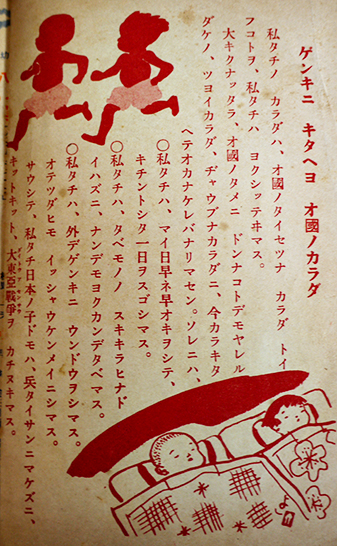 ゲンキニ キタヘヨ オ國ノカラダ
私タチノ カラダハ、オ國ノタイセツナ カラダ トイ
フコトヲ、私タチハ ヨクシッテヰマス。
大キクナッタラ、オ國ノタメニ ドンナコトデモヤレル
ダケノ、ツヨイカラダ、ヂャウブナカラダニ、今カラキタ
ヘテオカナケレバナリマセン。ソレニハ、
○私タチハ、マイ日早ネ早オキヲシテ、
キチントシタ一日ヲスゴシマス。
○私タチハ、タベモノノ スキキラヒナド
イハズニ、ナンデモヨクカンデタベマス。
○私タチハ、外デゲンキニ ウンドウヲシマス。
オテツダヒモ イッシャウケンメイニシマス。
サウシテ、私タチ日本ノ子ドモハ、兵タイサンニマケズニ、
キットキット、大東亞戰爭ヲ カチヌキマス。